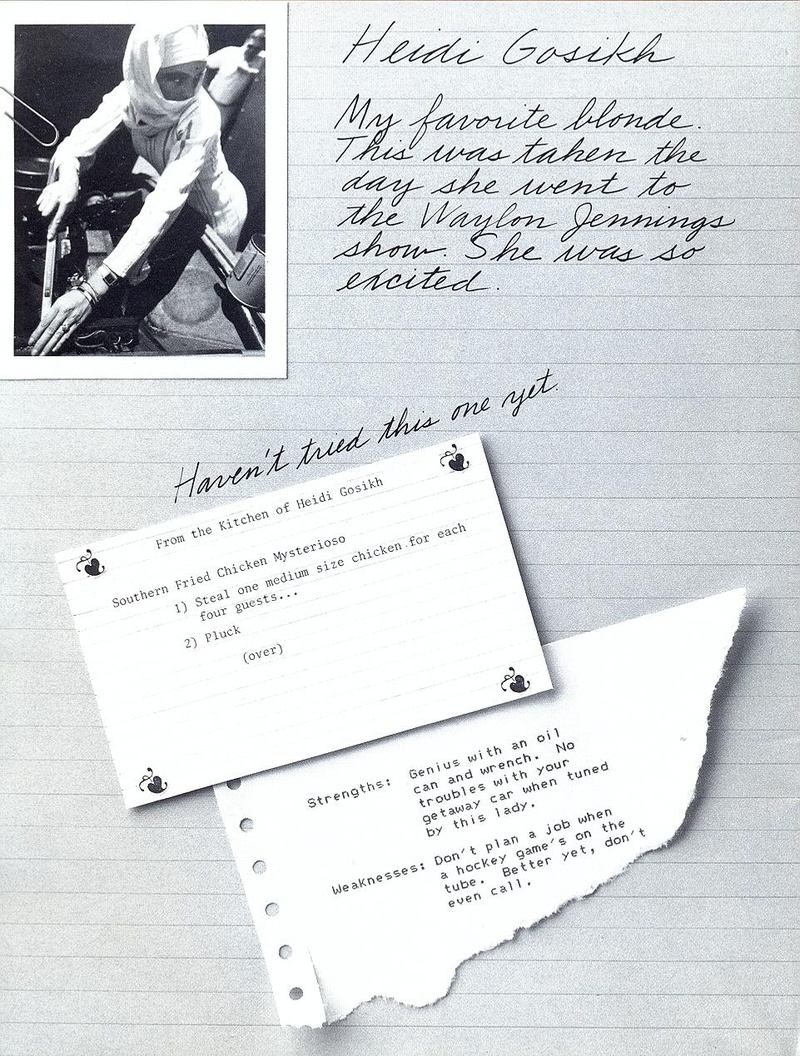 Heidi Gosikh
My favorite blonde.
This was taken the
day she went to
the Waylon Jennings
show. She was so
excited.
Haven't tried this one yet.
From the Kitchen of Heidi Gosikh
Southern Fried Chicken Mysterioso
1) Steal one medium size chicken for each
four guests...
2) Pluck
(over)
Strengths: Genius with an oil
can and wrench. No
troubles with your
getaway car when tuned
by this lady.
Weaknesses: Don't plan a job when
a hockey game's on the
tube. Better yet, don't
even call.